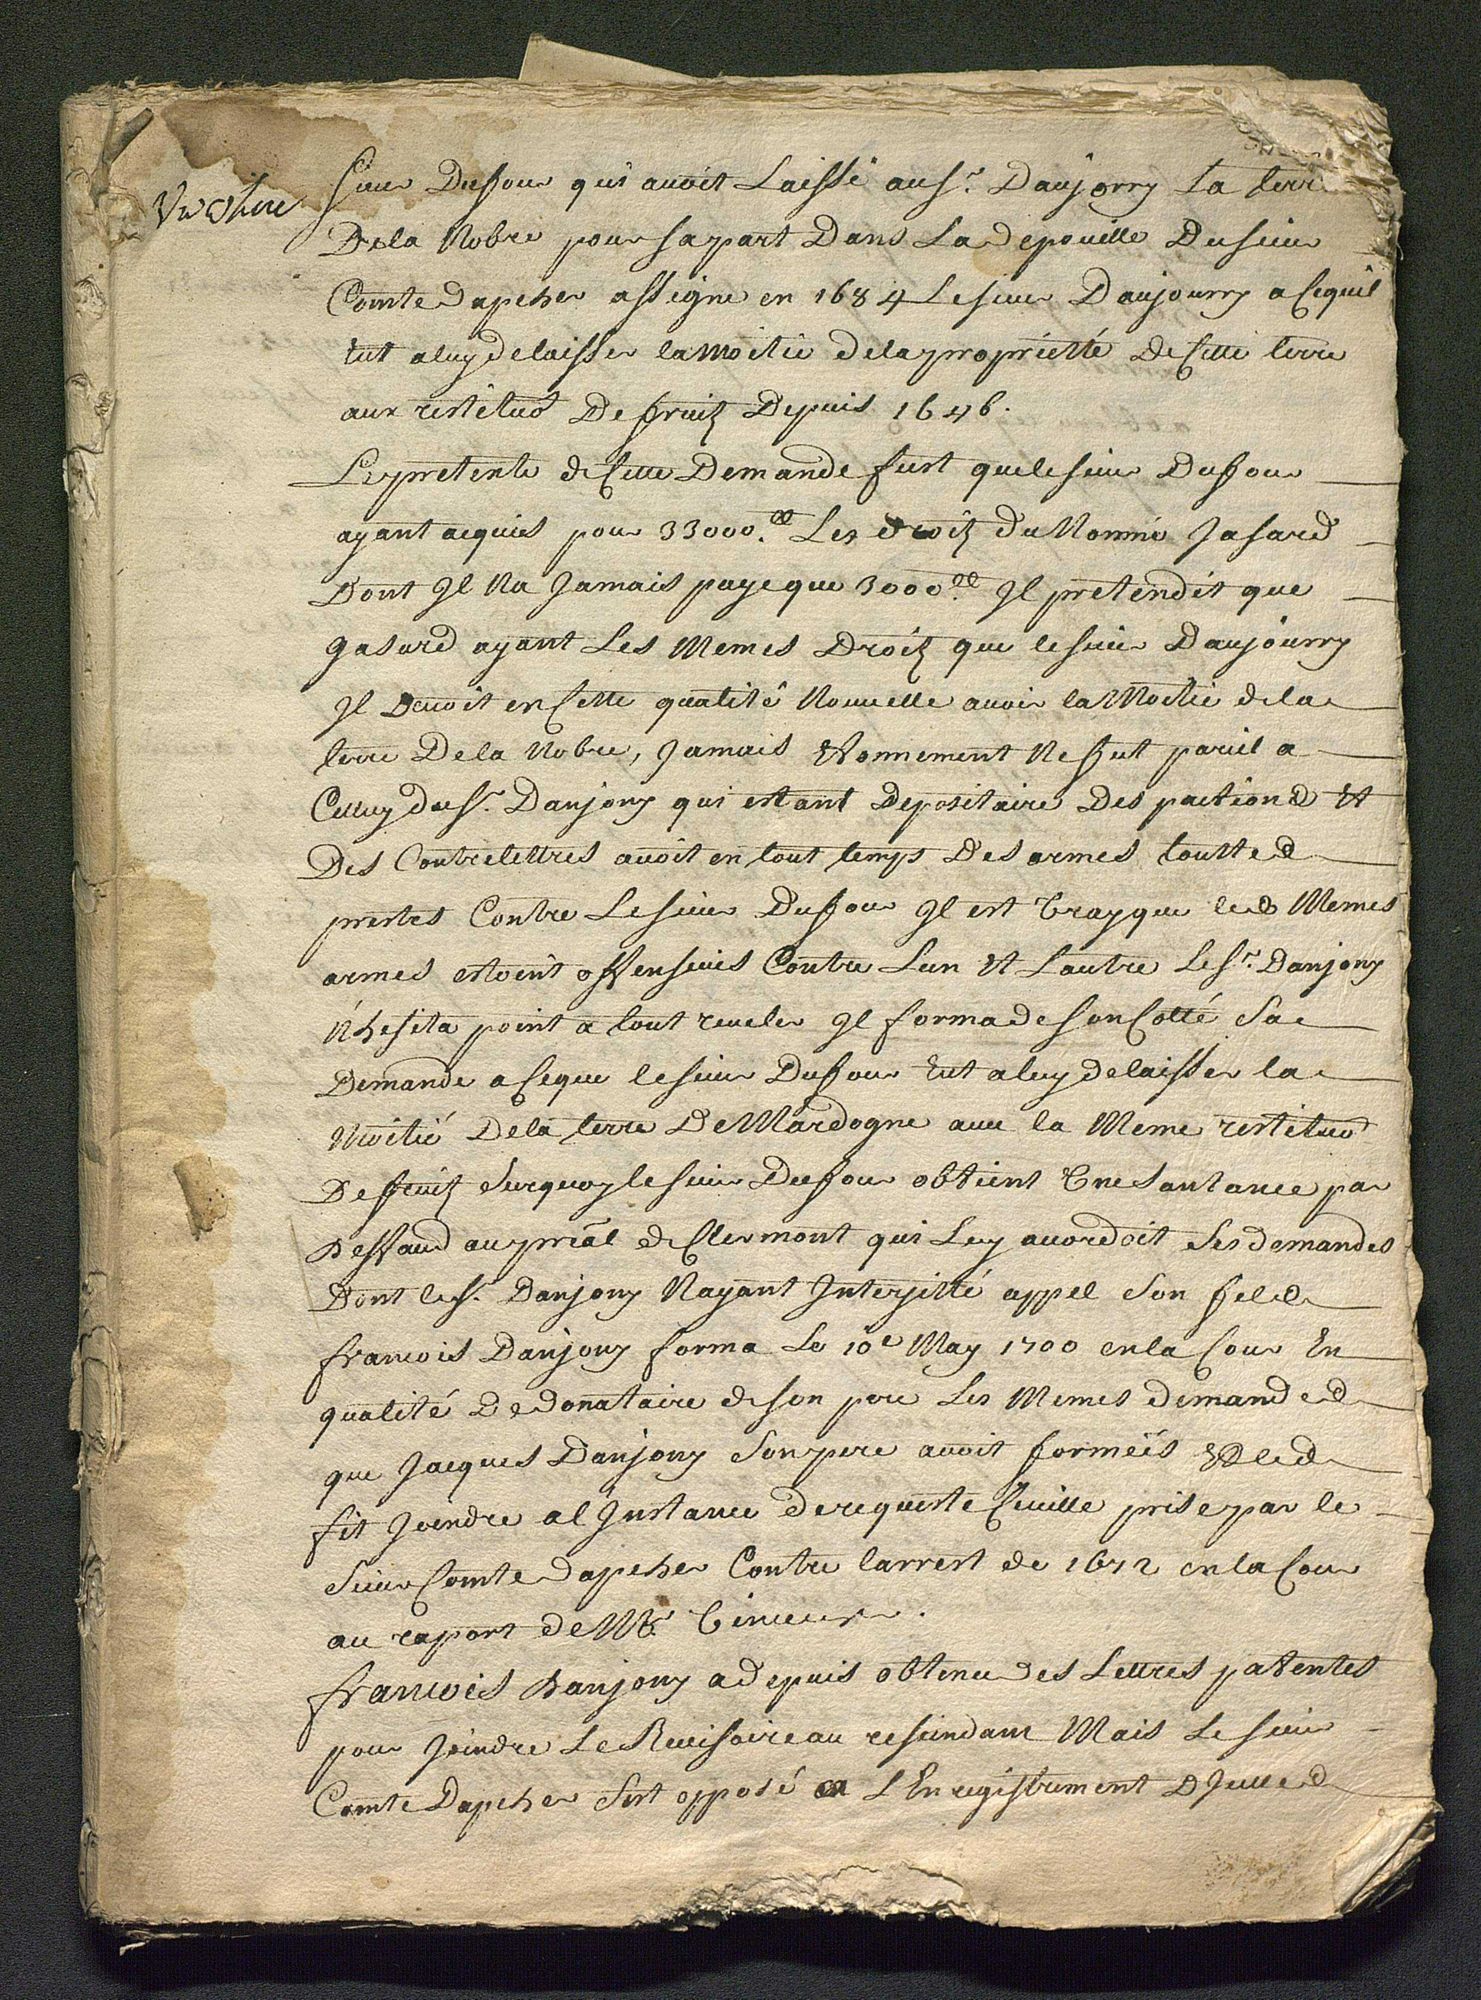 Sieur Dufour qui avoit Laissé au Sr. Daujorry La terre
De la Nobre pour sa part Dans La depouille Du sieur
Comte dapcher assigna en 1684 Le sieur Daujourry a Cequil
eut a luy delaisser la Moitié de la proprietté de Cette terre
aux restituon De fruitz Depuis 1646.
Le pretexte de Cette Demande fust que le sieur Dufour
ayant acquis pour 33000.ll Les droitz du Nommé Jasard
Dont Jl Na Jamais payé que 3000.ll Jl pretendit que
gasard ayant Les Memes Droitz que le sieur Daujourry
Jl Devoit en Cette qualité Nouvelle avoir la Moitié de la
terre De la Nobre, Jamais Etonnement Ne fut pareil a
Celuy du Sr. Danjony qui estant Depositaire Des pactions Et
Des Contrelettres avoit en tout temps Des armes toutted
prestes Contre Le sieur Dufour Jl est Vray que les Memes
armes estoint offensives Contre Lun Et Lautre Le Sr. Danjony
N'hesita point a tout reveler Jl forma de son Cotté Sa
Demande a Ceque le sieur Dufour Eut a luy delaisser la
Moitié De la terre De Mardogne avec la Meme restituon
De fruitz Surquoy le sieur Dufour obtient Une Santance par
Deffaud au prial de Clermont qui Luy acordoit Ses demandes
Dont le Sr. Danjony Nayant Interjetté appel Son fils
francois Danjony forma Le 10e May 1700 en la Cour En
qualité De donataire de son pere Les Memes demandes
que Jacques Danjony Son pere avoit formeés Et Les
fit Joindre a l Jnstance de requeste Civille prise par le
Sieur Comte dapcher Contre larrest de 1672 en la Cour
au raport de Mr.
francois Danjony a depuis obtenu des Lettres patentes
pour Joindre Le Recisoire au rescindant Mais Le sieur
Comte Dapcher Sest opposé a L'Enregistrement D Jcelles